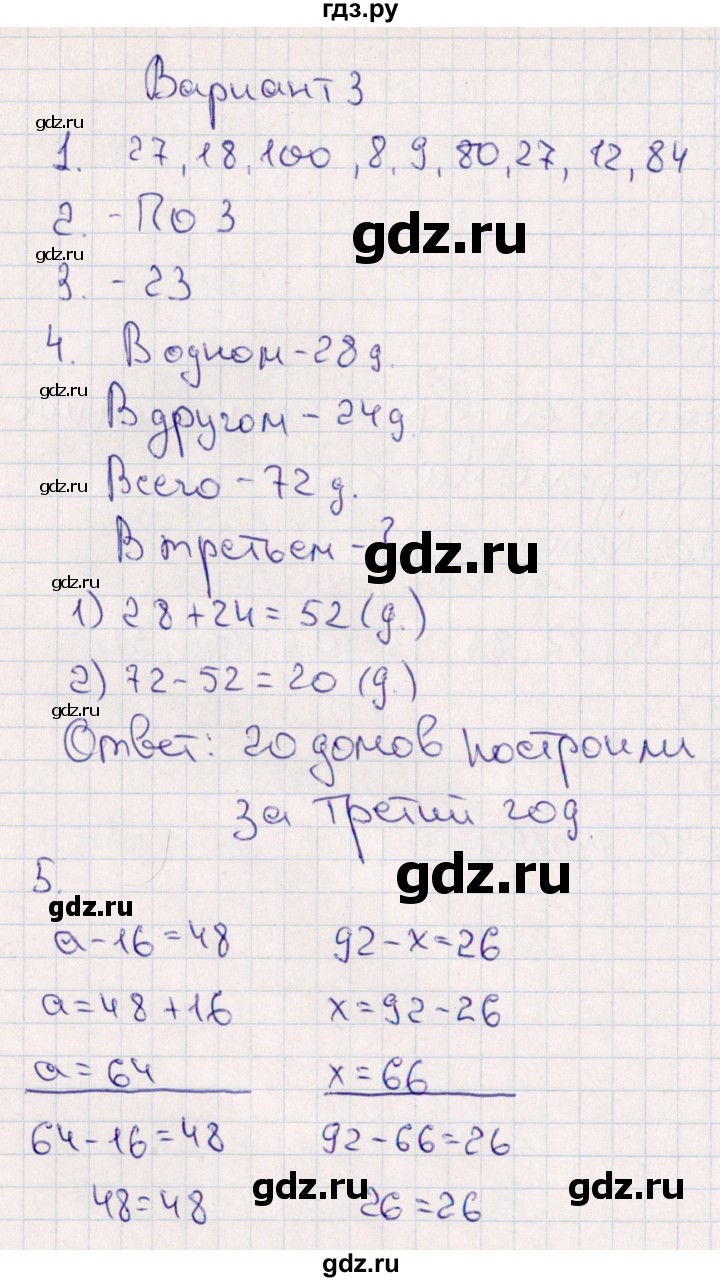 гдз.ру
Вариант 3
gdz.ru
1. 27, 18, 100, 8, 9, 80, 27, 12, 84
2. - По 3
gdz.ru
gdz.ru
3. - 23
4. В одном - 28 д.
gdz.ru
В другом - 24 д.
gdz.ru
Всего - 72 д.
В третьем - ?
gdz.ru
gdz.ru
1) 28 + 24 = 52 (д.)
2) 72 - 52 = 20 (д.)
gdz.ru
Ответ: 20 домов построили
за третий год.
gdz.ru
5.
gdz.ru
а - 16 = 48 92 - х = 26
а = 48 + 16 х = 92 - 26
а = 64 х = 66
64 - 16 = 48 92 - 66 = 26
gdz.ru gdz.ru
48 = 48 26 = 26
gdz.ru